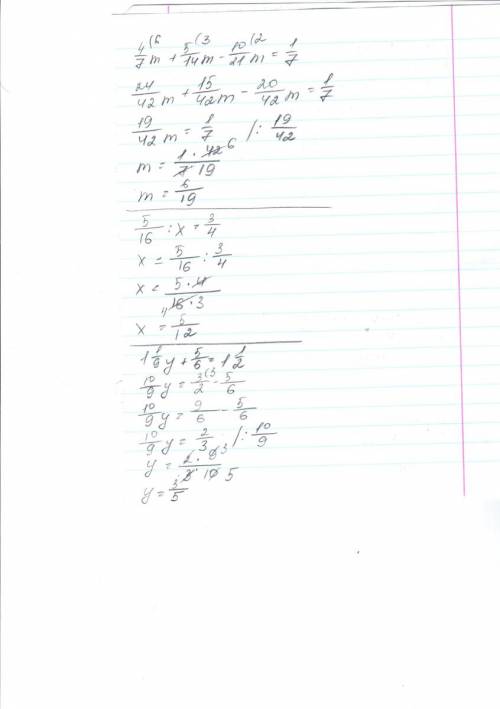 4/7 (6 m + 5/14 (3 m - 10/21 (2 m = 1/7
24/42 m + 15/42 m - 20/42 m = 1/7
19/42 m = 1/7 /: 19/42
m = 1 · 42 6 / 7 19
m = 6/19
5/16 : x = 3/4
x = 5/16 : 3/4
x = 5 · 4 / 4 16 · 3
x = 5/12
1 1/9 y + 5/6 = 1 1/2
10/9 y = 3/2 (3 - 5/6
10/9 y = 9/6 - 5/6
10/9 y = 2/3 /: 10/9
y = 2 · 9 3 / 3 10 5
y = 3/5